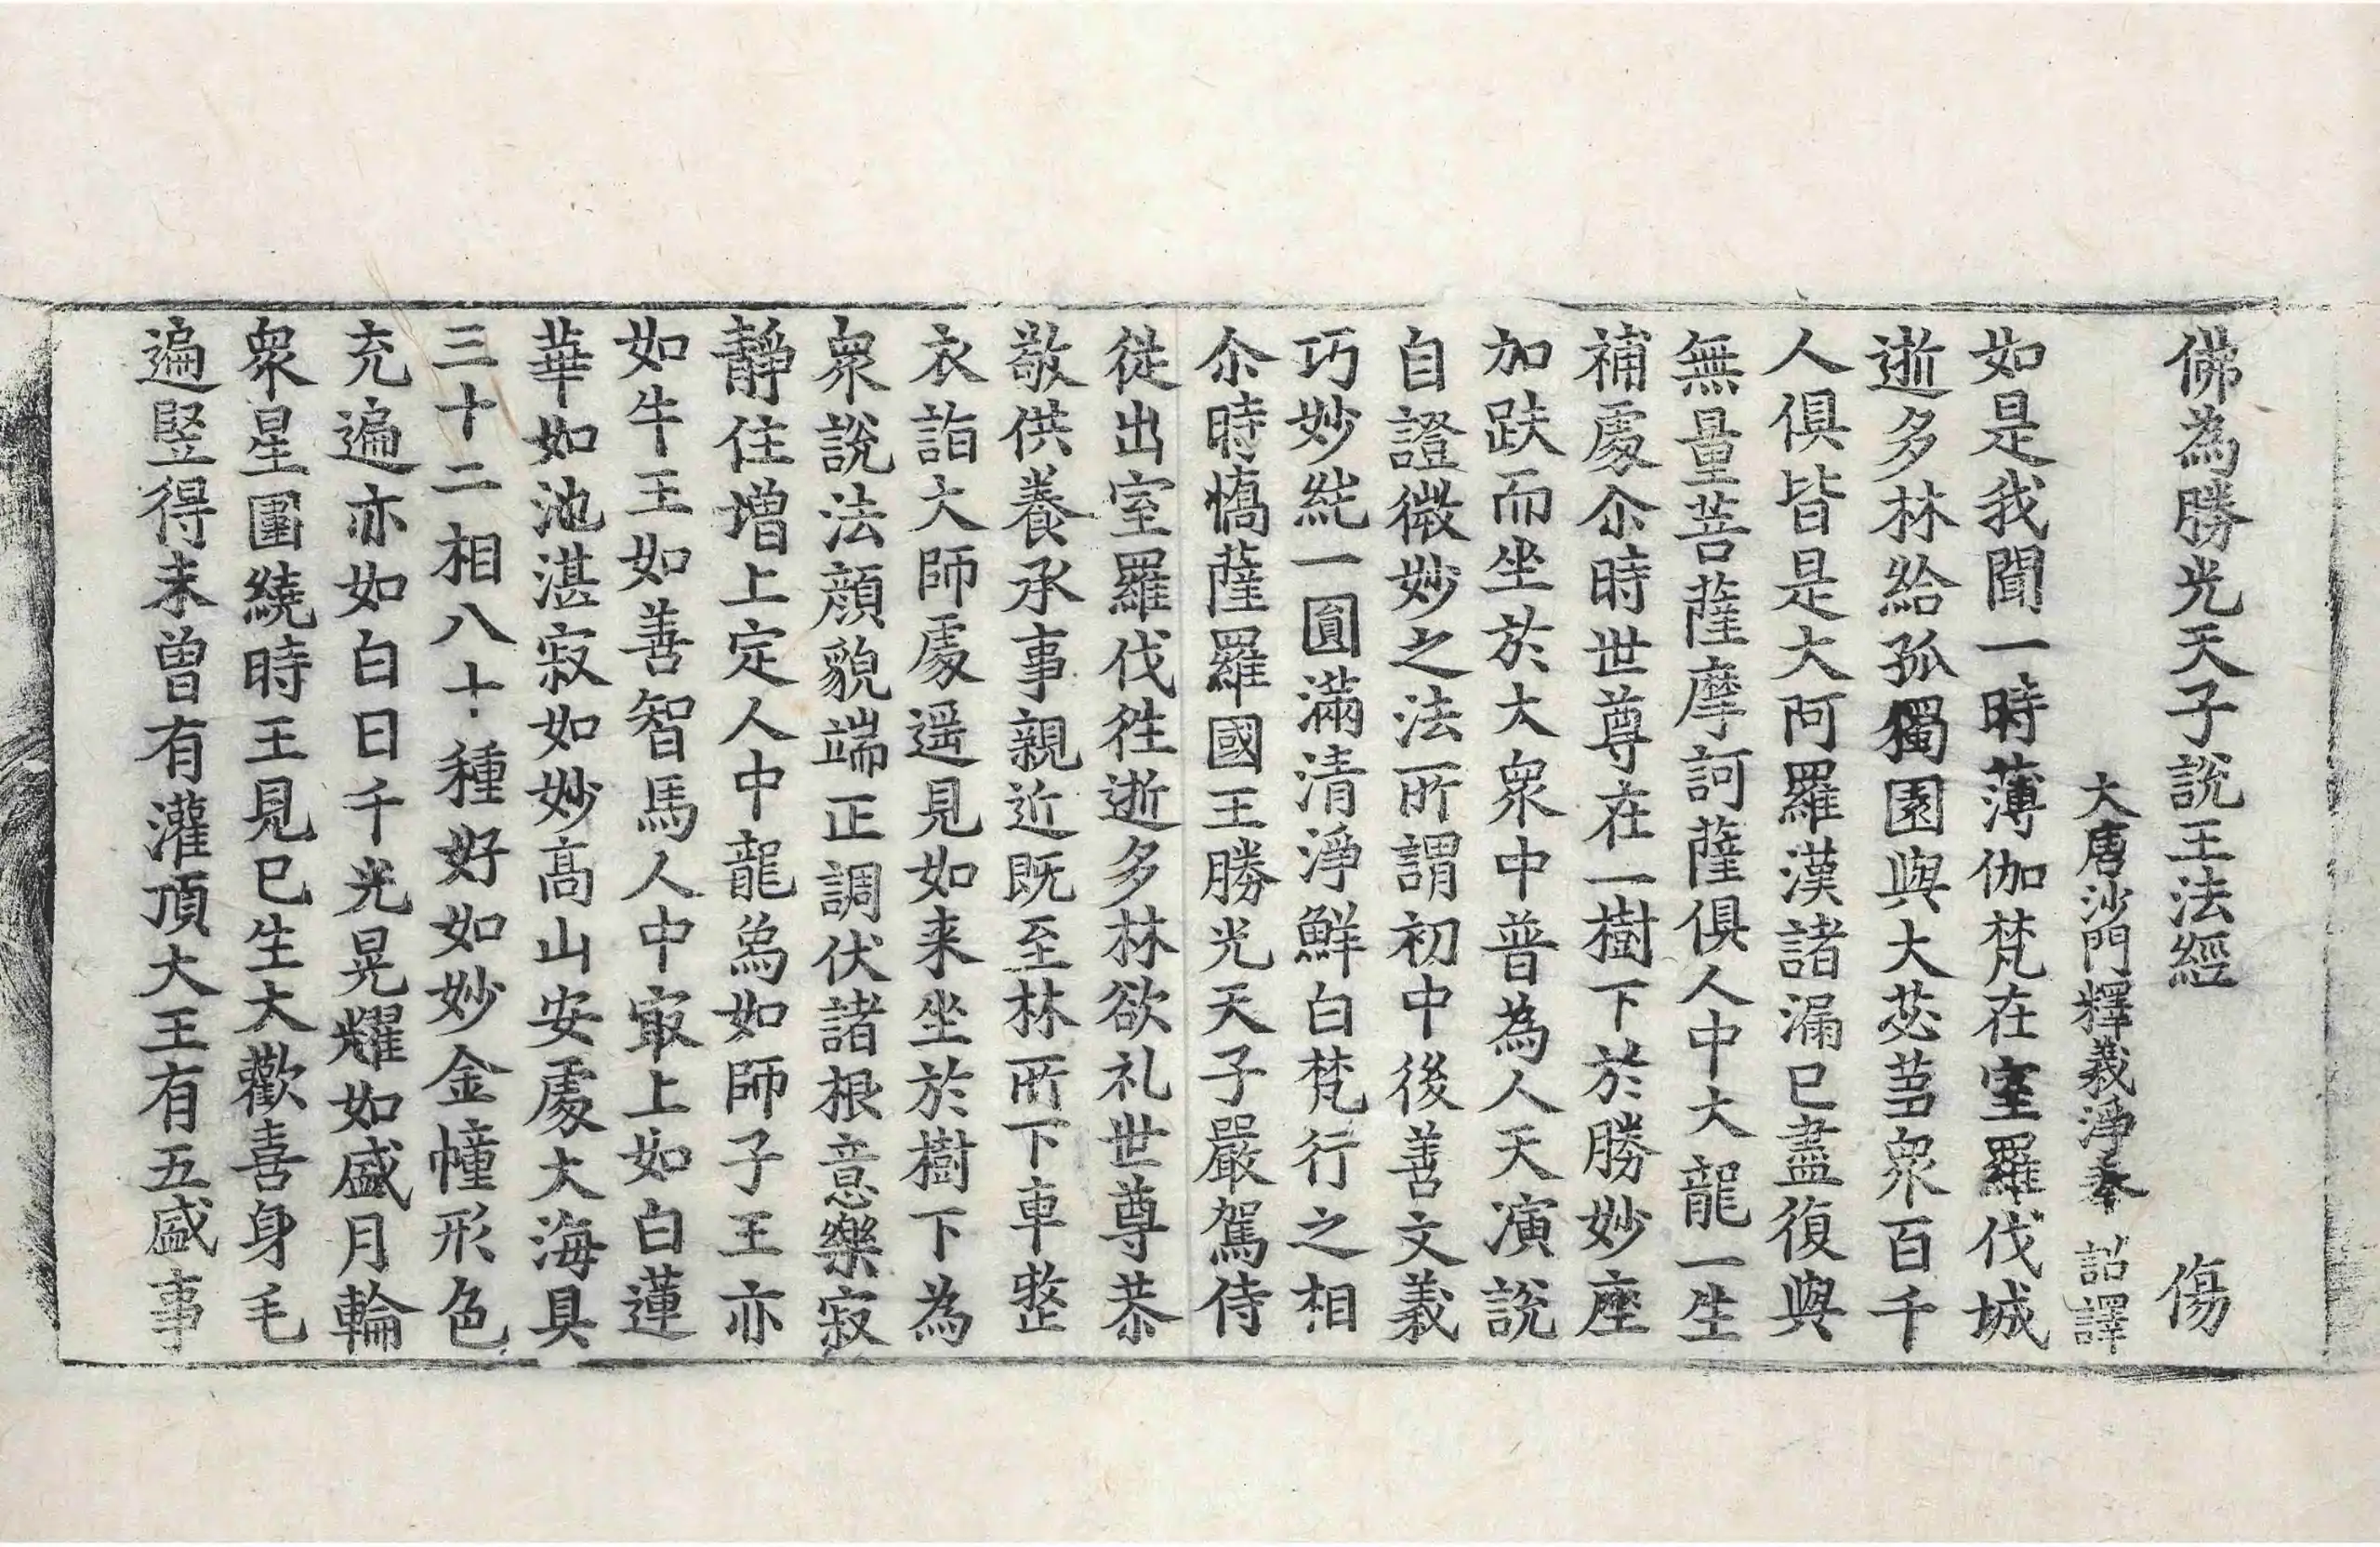 佛為勝光天子說王法經 傷
大唐沙門釋義淨奉 詔譯
如是我聞一時薄伽梵在室羅伐城
逝多林給孤獨園與大苾蒭衆百千
人俱皆是大阿羅漢諸漏已盡復與
無量菩薩摩訶薩俱人中大龍一生
補處尒時世尊在一樹下於勝妙座
加趺而坐於大衆中普為人天演說
自證微妙之法所謂初中後善文義
巧妙純一圓滿清淨鮮白梵行之相
尒時憍薩羅國王勝光天子嚴駕侍
從出室羅伐往逝多林欲礼世尊恭
敬供養承事親近既至林所下車整
衣詣大師處遥見如来坐於樹下為
衆說法顏貌端正調伏諸根意樂寂
靜住增上定人中龍象如師子王亦
如牛王如善智馬人中㝡上如白蓮
華如池湛寂如妙高山安處大海具
三十二相八十種好如妙金幢形色
充遍亦如白日千光晃耀如盛月輪
衆星圍繞時王見已生大歡喜身毛
遍竪得未曾有灌頂大王有五盛事